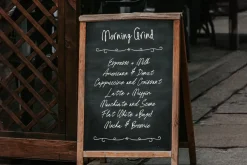 Morning Grind
Espresso + Milk
Americano & Donut
Cappuccino and Croissant
Latte + Muffin
Macchiato and Scone
Flat White + Bagel
Mocha & Brownie